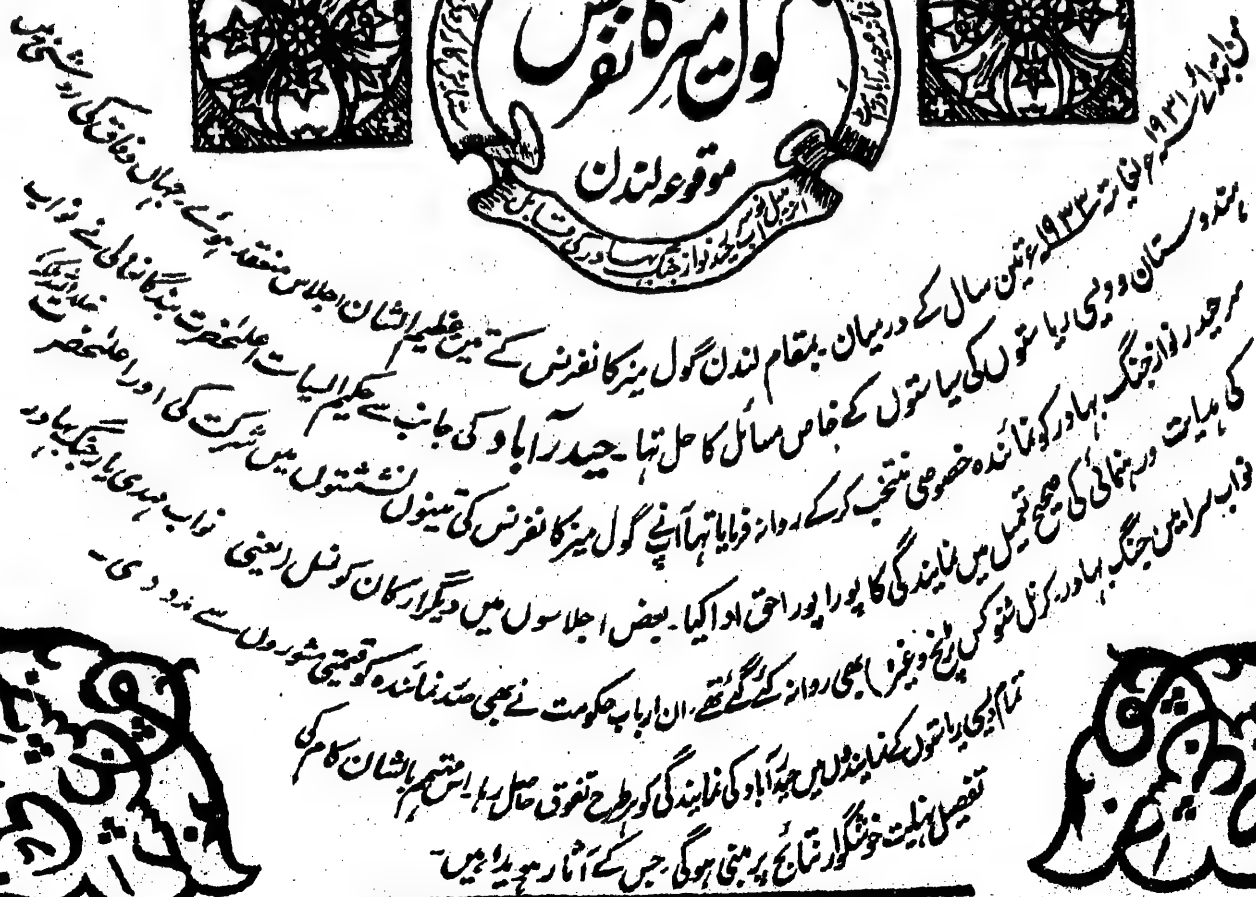 گول میز کانفرنس
موقوعہ لندن
من ابتدائے ۱۹۳۱ء لغایتہ ۱۹۳۳ء تین سال کے درمیان بمقام لندن گول میز کانفرنس کے تین عظیم الشان اجلاس منعقد ہوئے جہاں وفاق کی روشنی میں
ہندوستان و دیسی ریاستوں کی سیاستوں کے خاص مسائل کا حل تھا ۔ حیدرآباد کی جانب سے حکیم السیاست اعلیٰحضرت بندگانعالی نے نواب
سر حیدر نواز جنگ بہادر کو نمائندہ خصوصی منتخب کرکے روانہ فرمایا تھا آپنے گول میز کانفرنس کی تینوں نشستوں میں شرکت کی اور اعلیٰحضرت
کی ہدایت و رہنمائی کی صحیح تعمیل میں نمایندگی کا پورا پورا حق ادا کیا ۔ بعض اجلاسوں میں دیگر ارکان کونسل (یعنی نواب مہدی یار جنگ بہادر
نواب سر امین جنگ بہادر ۔ کرنل ٹرنچ وغیرہ) بھی روانہ کئے گئے تھے ۔ ان ارباب حکومت نے بھی صدر نمائندہ کو قیمتی مشوروں سے مدد دی ۔
تمام دیسی ریاستوں کے نمایندوں میں حیدرآباد کی نمایندگی کو ہر طرح تفوق حاصل رہا ۔ اس مہتم بالشان کام کی
تفصیل نہایت خوشگوار نتائج پر مبنی ہوگی جس کے آثار ہویدا ہیں ۔